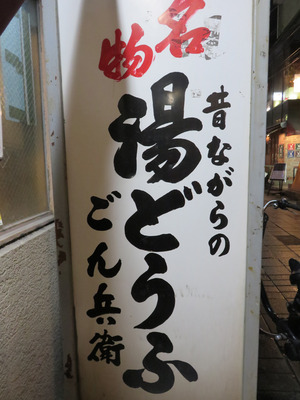 名物
昔ながらの
湯どうふ
ごん兵衛